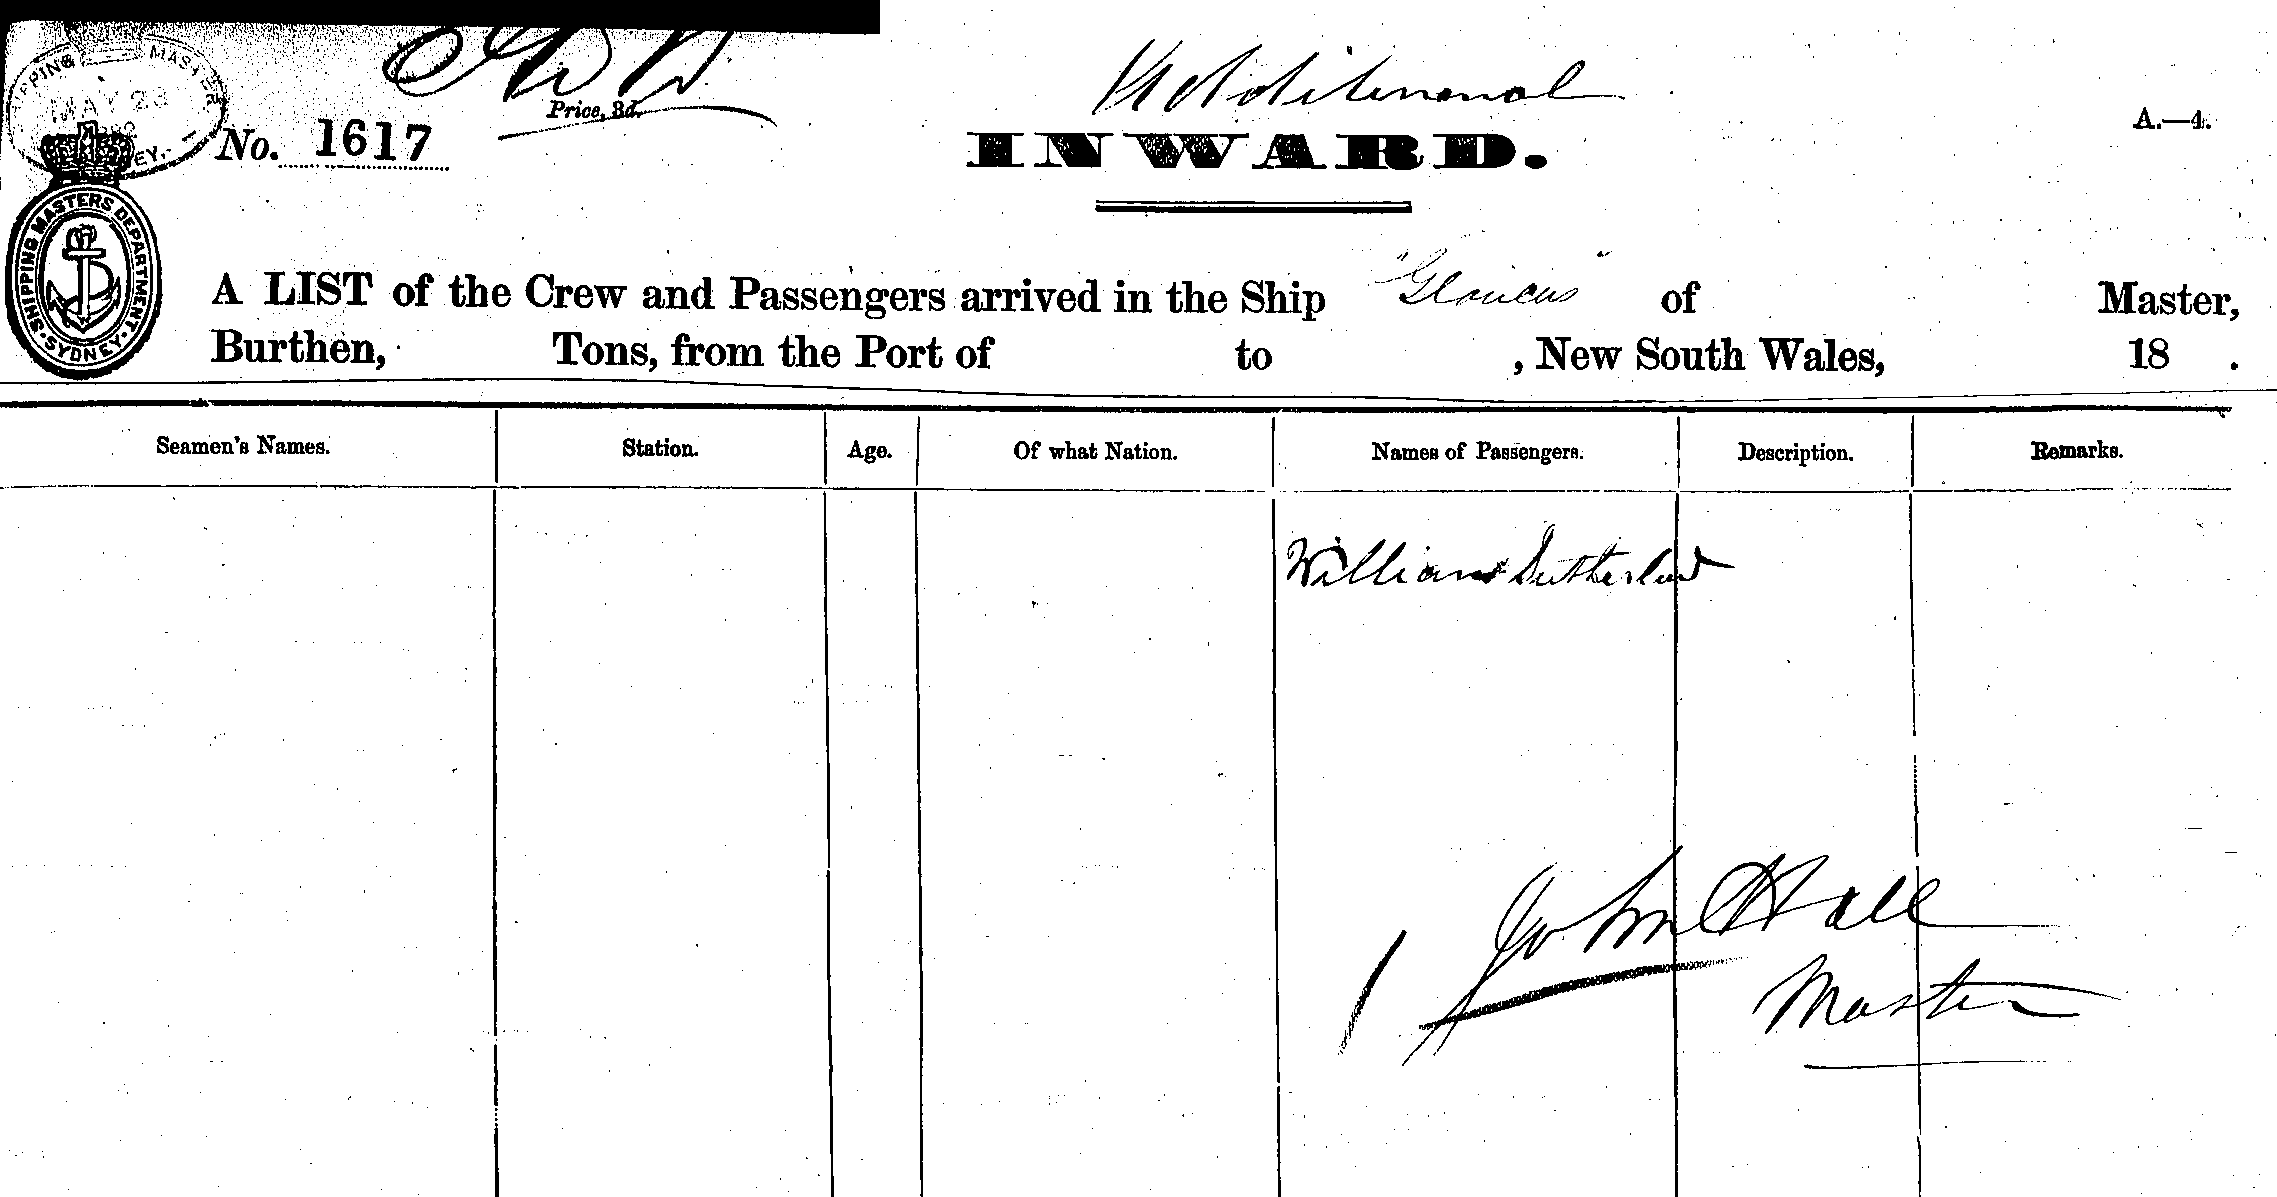 SHIPPING MASTER
MAY 23
SYDNEY
Price, 3d.
Additional
No. 1617
INWARD.
A.—4.
SHIPPING MASTERS DEPARTMENT. SYDNEY.
A LIST of the Crew and Passengers arrived in the Ship "Glaucus" of Master,
Burthen, Tons, from the Port of to , New South Wales, 18 .
Seamen's Names. Station. Age. Of what Nation. Names of Passengers. Description. Remarks.
William Sutherland
John Hall
Master